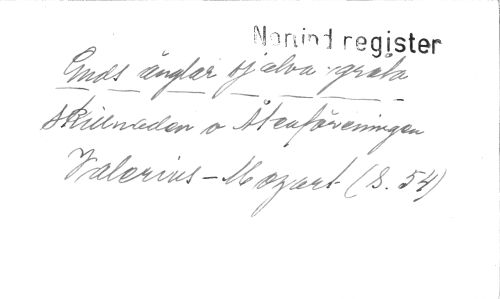 Nonind register
Guds änglar sjelva gråta
Skillnaden o Återföreningen
Valerius - Mozart (S. 54)